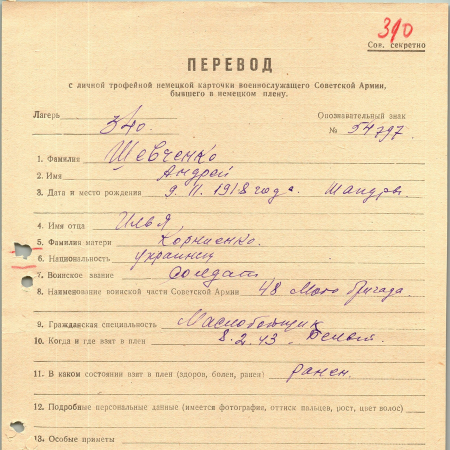 390
Сов. секретно
ПЕРЕВОД
с личной трофейной немецкой карточки военнослужащего Советской Армии,
бывшего в немецком плену.
Лагерь Опознавательный знак
340. № 54797
1. Фамилия Шевченко
2. Имя Андрей
3. Дата и место рождения 9. 11. 1918 года.
4. Имя отца Илья
5. Фамилия матери Корниенко.
6. Национальность украинец
7. Воинское звание Солдат
8. Наименование воинской части Советской Армии 48 Мото бригада.
9. Гражданская специальность Маслобойщик
10. Когда и где взят в плен 8. 2. 43.
11. В каком состоянии взят в плен (здоров, болен, ранен) ранен.
12. Подробные персональные данные (имеется фотография, оттиск пальцев, рост, цвет волос)
13. Особые приметы